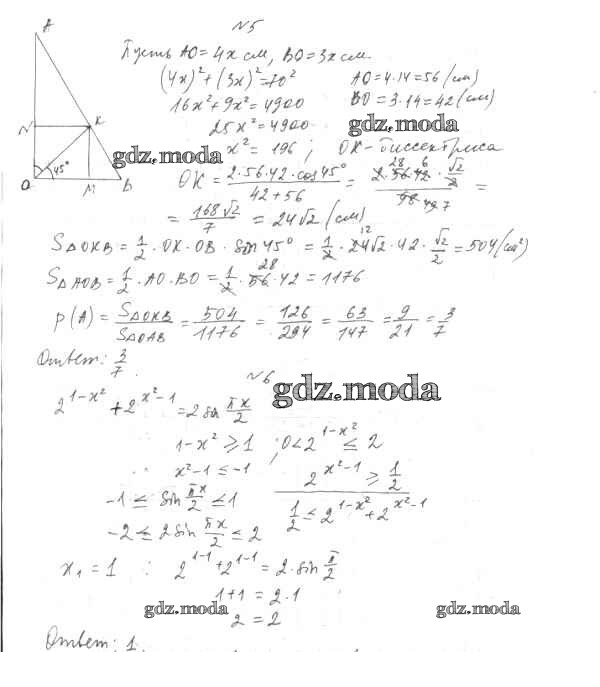 №5
A
N
K
O
45°
M
B
Пусть AO = 4x см, BO = 3x см.
(4x)² + (3x)² = 70²
AO = 4·14 = 56 (см)
16x² + 9x² = 4900
BO = 3·14 = 42 (см)
25x² = 4900
gdz.moda
x² = 196; OK - биссектриса
gdz.moda
OK = 2·56·42·cos45° / 42+56 = 2·56·42·√2/2 / 98 49 7 =
28 6
= 168√2 / 7 = 24√2 (см)
S△OKB = 1/2 · OK · OB · sin 45° = 1/2 · 24√2 · 42 · √2/2 = 504 (см²)
12
S△AOB = 1/2 · AO · BO = 1/2 · 56 · 42 = 1176
28
p(A) = S△OKB / S△OAB = 504/1176 = 126/294 = 63/147 = 9/21 = 3/7
Ответ: 3/7.
№6
gdz.moda
2^(1-x²) + 2^(x²-1) = 2 sin πx/2
1-x² ⩾ 1 ; 0 < 2^(1-x²) ≤ 2
x²-1 ≤ -1
2^(x²-1) ⩾ 1/2
-1 ≤ sin πx/2 ≤ 1
1/2 ≤ 2^(1-x²) + 2^(x²-1)
-2 ≤ 2 sin πx/2 ≤ 2
x₁ = 1 ∴ 2^(1-1) + 2^(1-1) = 2·sin π/2
1+1 = 2·1
gdz.moda
2 = 2
gdz.moda
Ответ: 1.